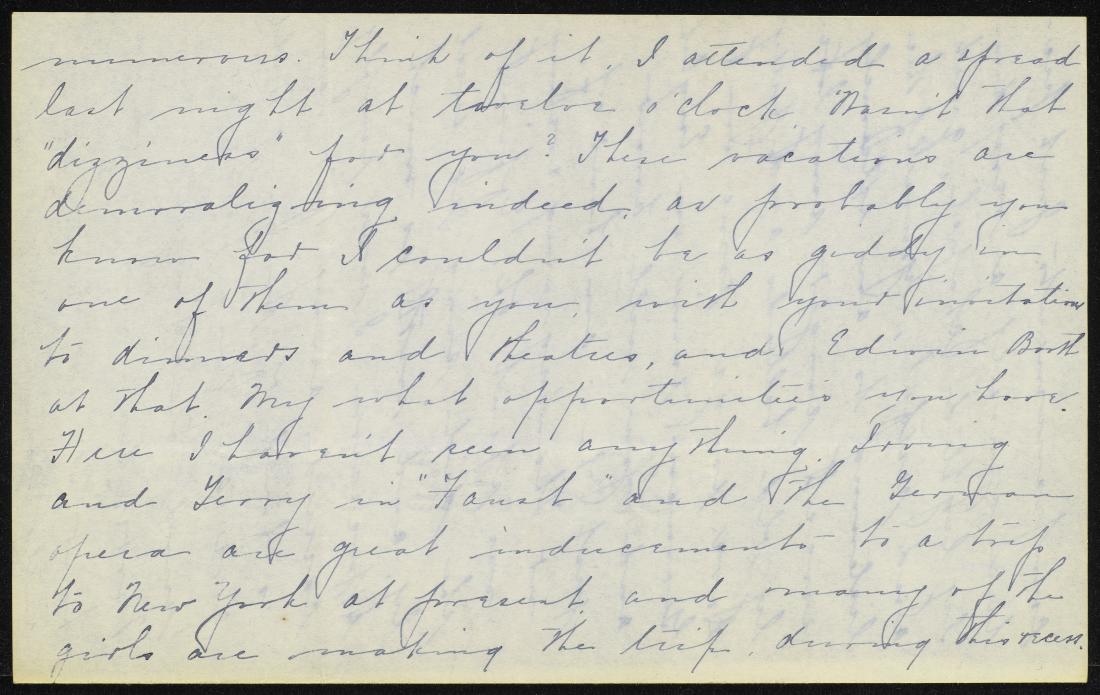 numerous. Think of it, I attended a spread
last night at twelve o'clock Wasn't that
"dizziness" for you? These vacations are
demoralizing indeed, as probably you
know for I couldn't be as giddy in
one of them as you, with your invitations
to dinners and theatres, and Edwin Booth
at that. My what opportunities you have.
Here I haven't seen anything. Irving
and Terry in "Faust" and the German
opera are great inducements to a trip
to New York at present and many of the
girls are making the trip, during this recess.